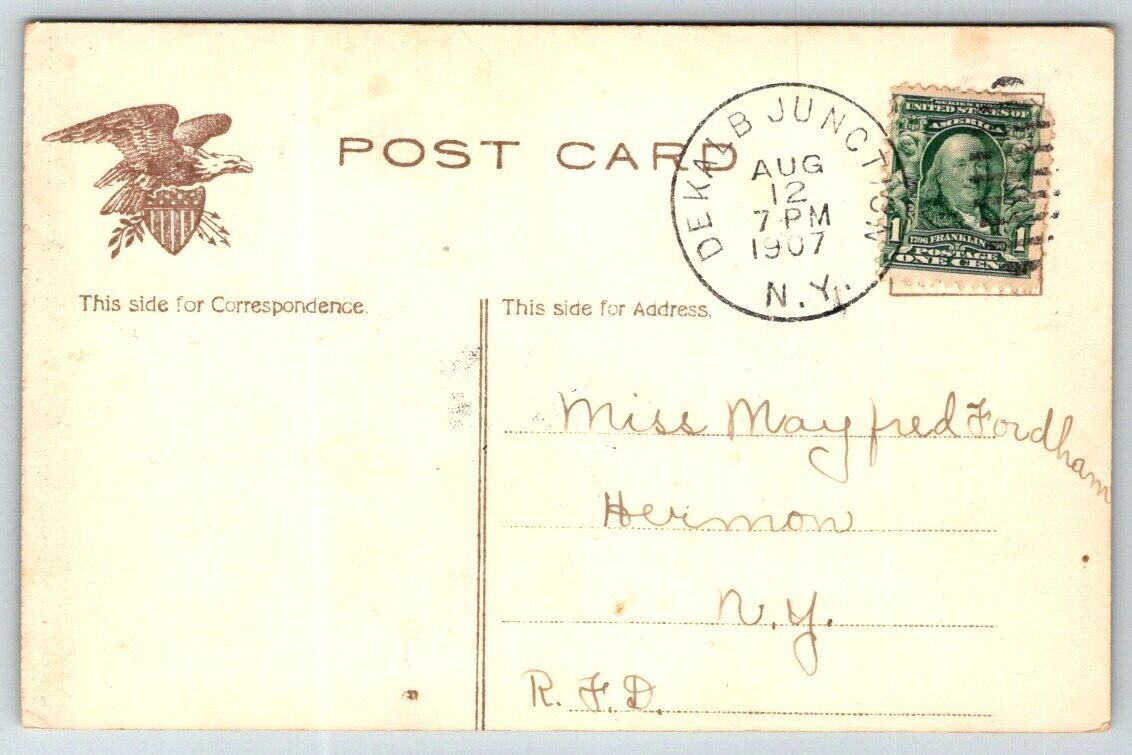 POST CARD
DEKALB JUNCTION
AUG
12
7 PM
1907
N.Y.
SERIES 1902
UNITED STATES OF
AMERICA
1706 FRANKLIN
1 1
POSTAGE
ONE CEN
This side for Correspondence.
This side for Address.
Miss Mayfred Fordham
Hermon
N.Y.
R.F.D.